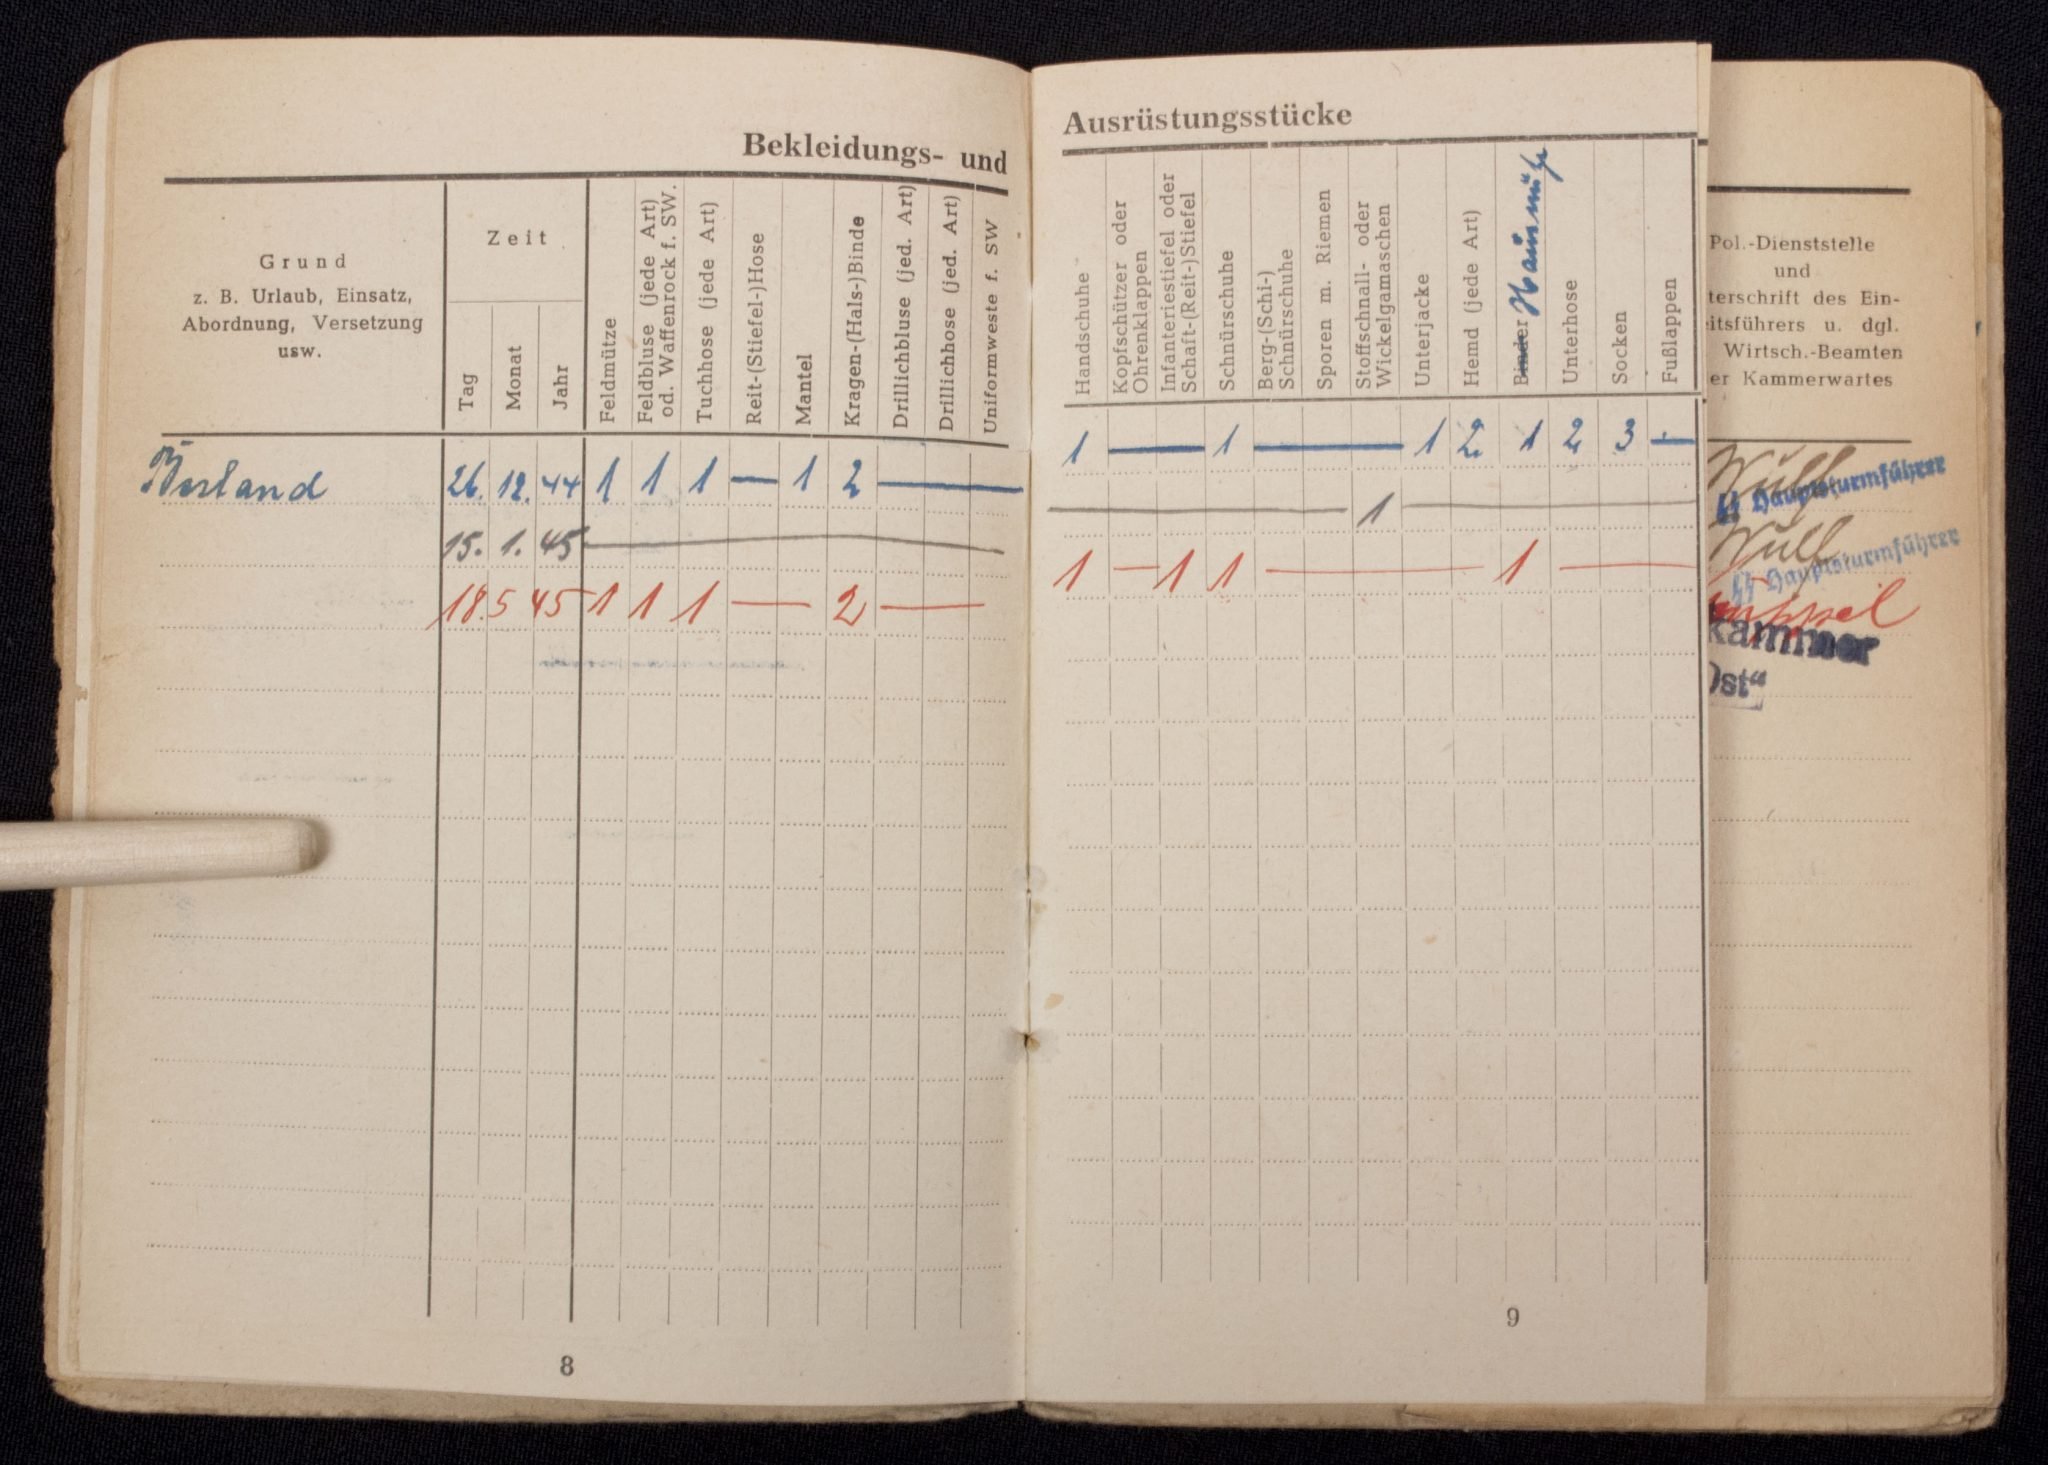 Bekleidungs- und
Grund
z. B. Urlaub, Einsatz,
Abordnung, Versetzung
usw.
Zeit
Tag
Monat
Jahr
Feldmütze
Feldbluse (jede Art)
od. Waffenrock f. SW.
Tuchhose (jede Art)
Reit-(Stiefel-)Hose
Mantel
Kragen-(Hals-)Binde
Drillichbluse (jed. Art)
Drillichhose (jed. Art)
Uniformweste f. SW
26. 12. 44 1 1 1 — 1 2 —
15. 1. 45 —
18. 5 45 1 1 1 — 2 —
8
Ausrüstungsstücke
Handschuhe
Kopfschützer oder
Ohrenklappen
Infanteriestiefel oder
Schaft-(Reit-)Stiefel
Schnürschuhe
Berg-(Schi-)
Schnürschuhe
Sporen m. Riemen
Stoffschnall- oder
Wickelgamaschen
Unterjacke
Hemd (jede Art)
Binder
Unterhose
Socken
Fußlappen
1 — 1 — 1 2 1 2 3 —
— 1 —
1 — 1 1 — 1 —
9
Pol.-Dienststelle
und
terschrift des Ein-
eitsführers u. dgl.
Wirtsch.-Beamten
er Kammerwartes
Wulf
SS Hauptsturmführer
Wulf
SS Hauptsturmführer
kammer
Ost“